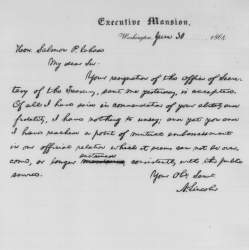 Executive Mansion,
Washington, June 30, 1864.
Hon. Salmon P. Chase
My dear Sir.
Your resignation of the office of Secre-
tary of the Treasury, sent me yesterday, is accepted.
Of all I have said in commendation of your ability and
fidelity, I have nothing to unsay; and yet you and
I have reached a point of mutual embarrassment
in our official relation which it seems can not be over-
come, or longer sustained consistently with the public
service.
Your Obt. Servt
A. Lincoln